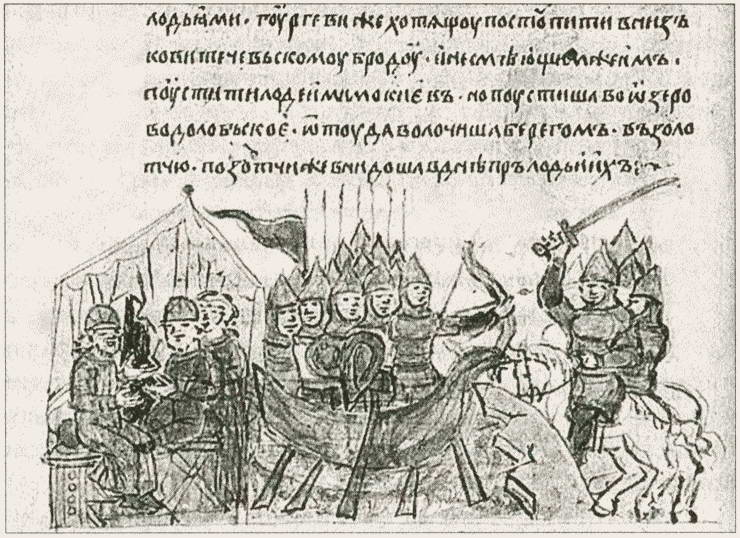 лодьꙗми · гоургевиже хотѧщоу постꙋпити внизъ
ковитечевьскомоу бродоу · и несмѣющимже имъ ·
поустити лодеи мимо києвъ · но поустиша во ѡзеро
водолобьскоє · ѿтоуда волочиша берегомъ · въ золо
тчю · по золотчиже внидоша вднѣпръ лодьи ихъ